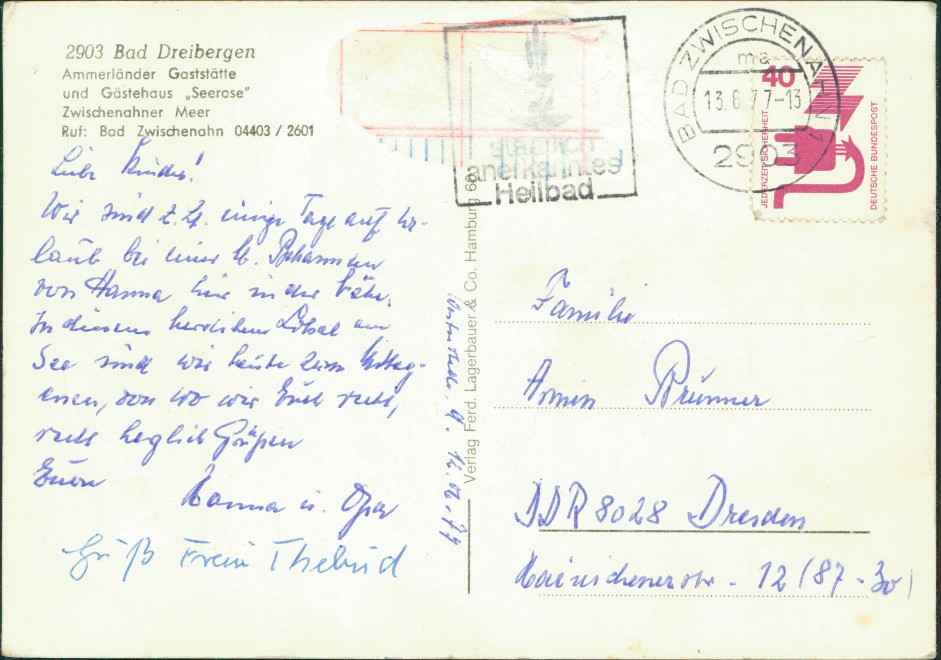 2903 Bad Dreibergen
Ammerländer Gaststätte
und Gästehaus „Seerose"
Zwischenahner Meer
Ruf: Bad Zwischenahn 04403 / 2601
Liebe Kinder!
Wir sind z. Zt. einige Tage auf Ur-
laub bei einer Bekannten
von Hanna hier in der Nähe.
In diesem herrlichen Lokal am
See sind wir heute zum Mittag-
essen, von wo wir Euch recht,
recht herzlich Grüßen
Eure
Hanna u. Opa
Gruß
Verlag Ferd. Lagerbauer & Co. Hamburg
staatlich
anerkanntes
Heilbad
BAD ZWISCHENAHN 1
ma
13.6.77-13
2903
40
JEDERZEIT SICHERHEIT
DEUTSCHE BUNDESPOST
Familie
Armin Brünner
DDR 8028 Dresden
12 (87-30)